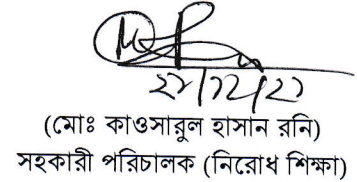 ২৮/১২/২২
(মোঃ কাওসারুল হাসান রনি)
সহকারী পরিচালক (নিরোধ শিক্ষা)